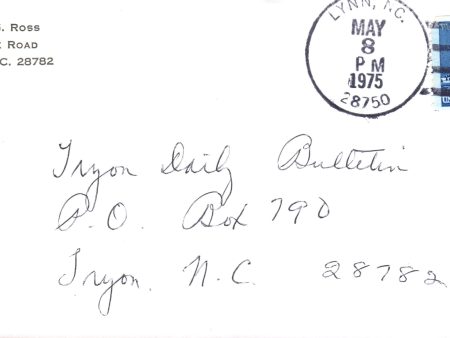 . Ross
Road
C. 28782
LYNN, N.C.
MAY
8
PM
1975
28750
Tryon Daily Bulletin
P.O. Box 790
Tryon. N.C. 28782